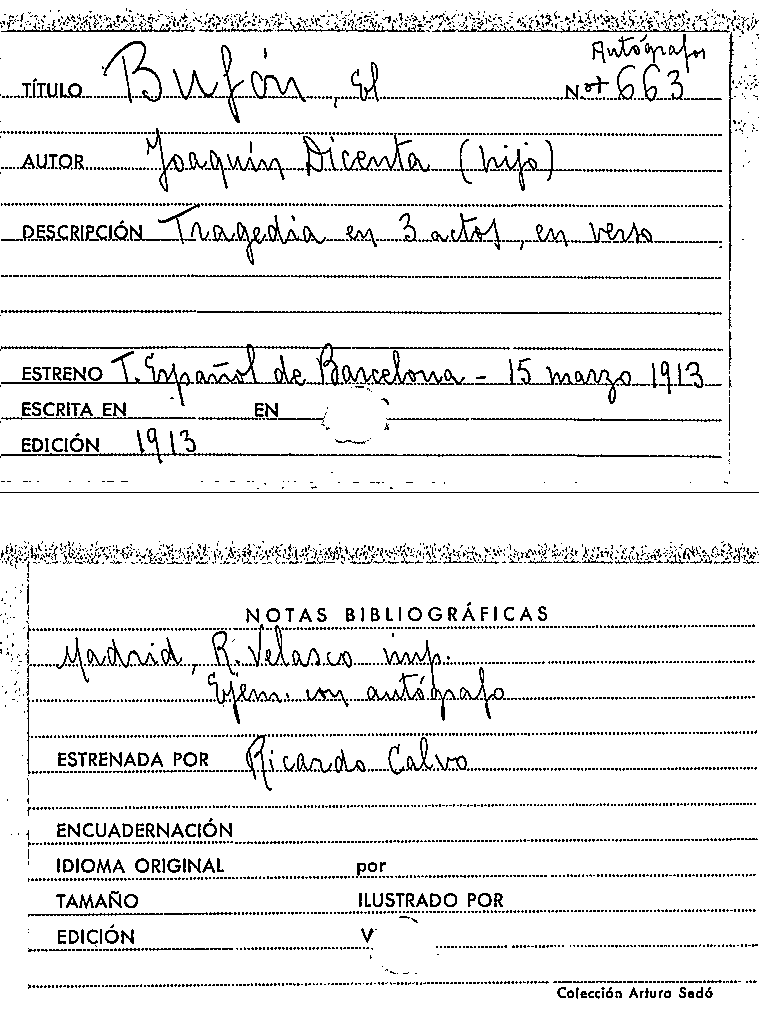 Autógrafos
TÍTULO Bufón, El Nº 663
AUTOR Joaquín Dicenta (hijo)
DESCRIPCIÓN Tragedia en 3 actos, en verso
ESTRENO T. Español de Barcelona - 15 marzo 1913
ESCRITA EN EN
EDICIÓN 1913
NOTAS BIBLIOGRÁFICAS
Madrid, R. Velasco imp.
Ejem. con autógrafo
ESTRENADA POR Ricardo Calvo
ENCUADERNACIÓN
IDIOMA ORIGINAL por
TAMAÑO ILUSTRADO POR
EDICIÓN V
Colección Arturo Sedó